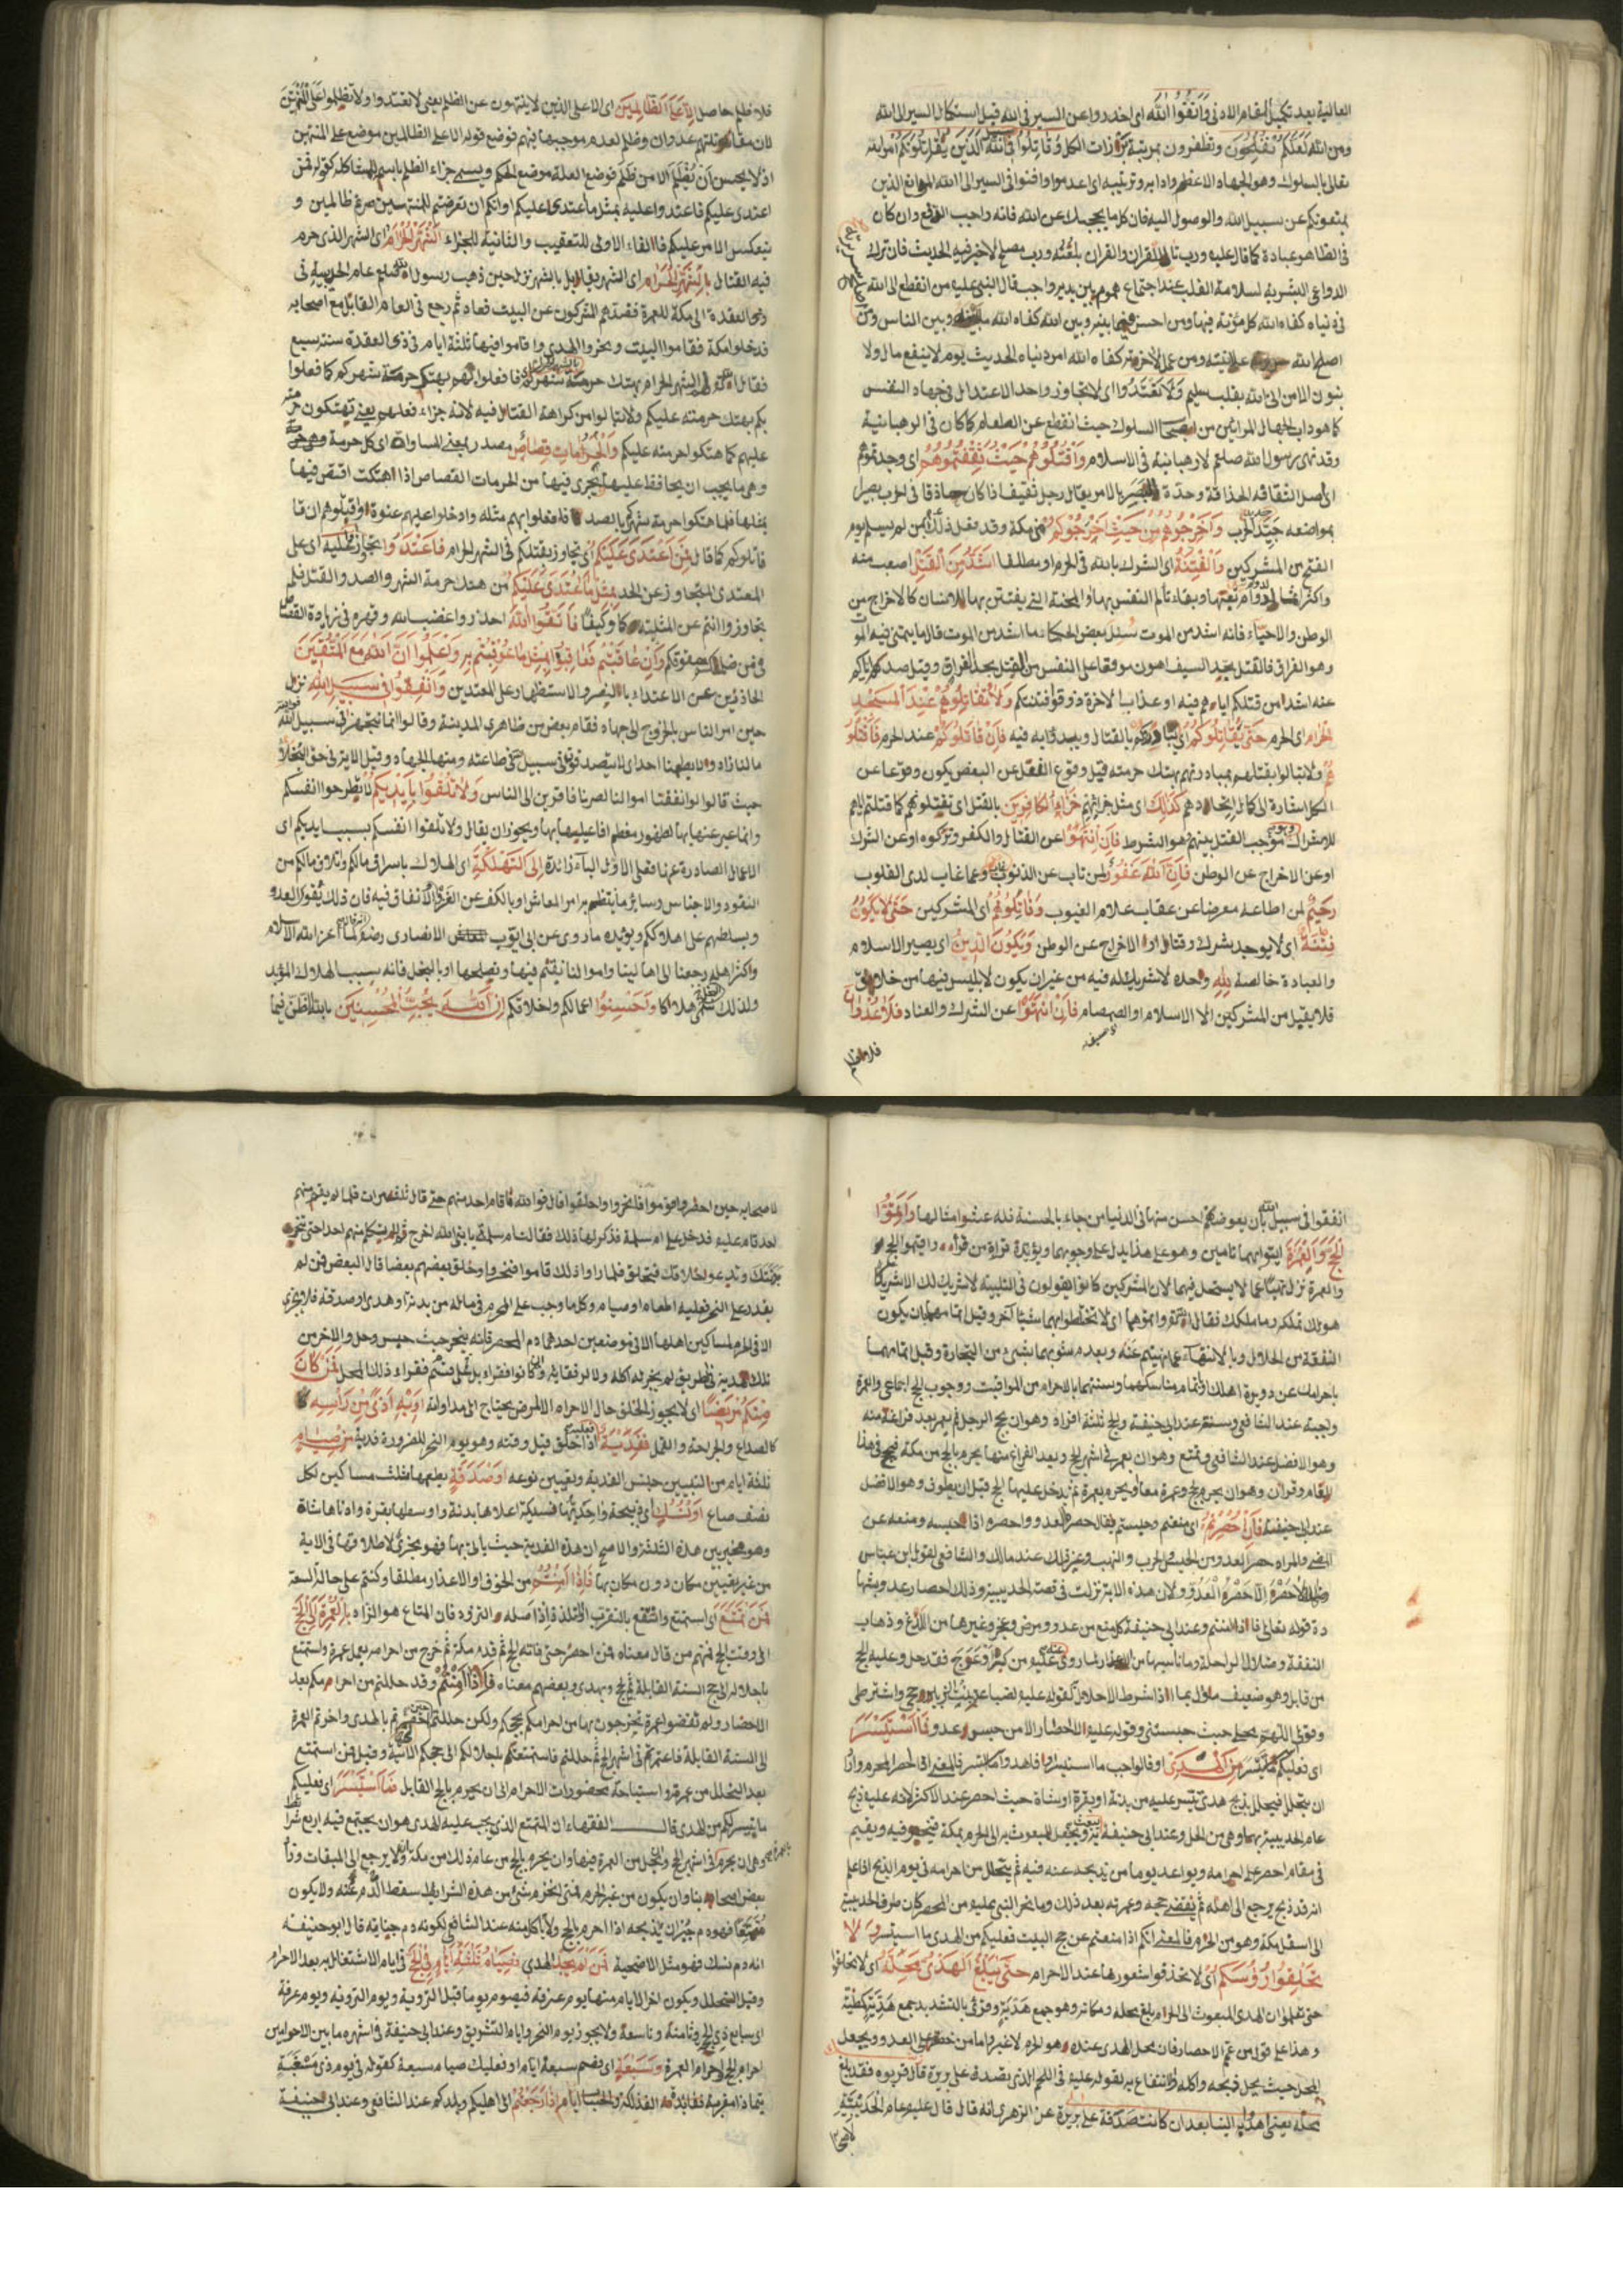 العالية بعد تكميل المقام الادنى وَاتَّقُوا اللّٰه اى احذروا عن السير فى الله قبل استكمال السير الى الله
ومن الله لَعَلَّكُمْ تُفْلِحُونَ وتظفرون بمرتبة الكل وَقَاتِلُوا فى الَّذِينَ يُقَاتِلُونَكُمْ
تعالى بالسلوك وهو الجهاد الاعظم وادابه وترتيبه اى اعدموا وافنوا فى السير الى الله الموانع الذين
يمنعونكم عن سبيل الله والوصول اليه فان كل ما يحجبك عن الله فانه واجب الدفع وان كان
فى الظاهر عبادة كما قال عليه ورب تال للقران والقران يلعنه ورب مصل لاخير فيه الحديث فان ترك
الدواعى البشرية لسلامة القلب عند اجتماع هموم بين يديه واجب قال النبى عليه من انقطع الى الله
فى دنياه كفاه الله كل مؤنة فيها ومن احسن فيما بينه وبين الله كفاه الله وبين الناس ومن
اصلح الله علانيته ومن عمل لاخرته كفاه الله امر دنياه الحديث يوم لا ينفع مال ولا
بنون الا من اتى الله بقلب سليم وَلَا تَعْتَدُوا اى لا تتجاوز واحد الاعتدال فى جهاد النفس
كما هو داب الجهال المرائين من السلوك حيث انقطع عن الطعام كما كان فى الرهبانية
وقد نهى رسول الله صلعم لا رهبانية فى الاسلام وَاقْتُلُوهُمْ حَيْثُ ثَقِفْتُمُوهُمْ اى وجدتموهم
اى اصل الثقافة الحذاقة وحدة بالامر يقال رجل ثقيف اذا كان حاذقا فى الحرب بصيرا
بمواضعه جيد الحرب وَأَخْرِجُوهُمْ مِنْ حَيْثُ أَخْرَجُوكُمْ من مكة وقد فعل ذلك بمن لم يسلم يوم
الفتح من المشركين وَالْفِتْنَةُ اى الشرك بالله فى الحرم او مطلقا أَشَدُّ مِنَ الْقَتْلِ اصعب منه
وبقاء تألم النفس بها او المحنة التى يفتتن بها الانسان كالاخراج من
الوطن والاحياء فانه اشد من الموت سئل بعض الحكماء ما اشد من الموت قال ما يتمنى فيه الموت
وهو الفراق فالقتل بحد السيف اهون موقعا على النفس من القتل بحد الفراق وقيل صدكم اياكم
عنه اشد من قتلكم اياهم فيه او عذاب الاخرة ذوقوا فتنتكم وَلَا تُقَاتِلُوهُمْ عِنْدَ الْمَسْجِدِ
الْحَرَامِ اى الحرم حَتّٰى يُقَاتِلُوكُمْ اى بالقتال فيه فَإِنْ قَاتَلُوكُمْ عند الحرم فَاقْتُلُو
هُمْ ولا تبالوا بقتلهم بمبادرتهم بهتك حرمته قيل وقوع الفعل عن البعض يكون وقوعا عن
الكل اشارة الى كمال اتحادهم كَذٰلِكَ اى مثل جَزَاءُ الْكَافِرِينَ بالقتل اى تقتلونهم كما قتلتم اياهم
للاشراك موجب القتل بينهم هو الشرط فَإِنِ انْتَهَوْا عن القتال والكفر وتركوه او عن الشرك
او عن الاخراج عن الوطن فَإِنَّ اللّٰهَ غَفُورٌ لمن تاب عن الذنوب وعما غاب لدى القلوب
رَحِيمٌ لمن اطاعه معرضا عن عقاب علام الغيوب وَقَاتِلُوهُمْ اى المشركين حَتّٰى لَا تَكُونَ
فِتْنَةٌ اى لا يوجد شرك وقتال او الاخراج عن الوطن وَيَكُونَ الدِّينُ اى يصير الاسلام
والعبادة خالصة لِلّٰهِ وحده لا شريك له فيه من غير ان يكون لابليس فيها من خلاق
فلا يقبل من المشركين الا الاسلام او الصمصام فَإِنِ انْتَهَوْا عن الشرك والعناد فَلَا عُدْوَانَ
فلا ظلم
فلا ظلم حاصل إِلَّا عَلَى الظَّالِمِينَ اى الا على الذين لا ينتهون عن الظلم يعنى لا تعتدوا ولا تظلموا على المنتهين
لان مقاتلتهم عدوان وظلم لعدم موجبها فيهم فوضع قوله الا على الظالمين موضع على المنتهين
اذ لا يحسن أن يُظلم الا من ظَلَم فوضع العلة موضع الحكم ويسمى جزاء الظلم باسمه للمشاكلة كقوله فمن
اعتدى عليكم فاعتدوا عليه بمثل ما اعتدى عليكم او انكم ان تعرضتم للمنتهين صرتم ظالمين و
ينعكس الامر عليكم فالفاء الاولى للتعقيب والثانية للجزاء الشَّهْرُ الْحَرَامُ اى الشهر الذى حرم
فيه القتال بِالشَّهْرِ الْحَرَامِ اى الشهر يقابل بالشهر نزل حين ذهب رسول الله صلعم عام الحديبية فى
ذى القعدة الى مكة للعمرة فصدهم المشركون عن البيت فعاد ثم رجع فى العام القابل مع اصحابه
فدخلوا مكة فقاموا البيت ونحروا الهدى واقاموا فيها ثلثة ايام فى ذى القعدة سنة سبع
فقال الشهر الحرام بهتك حرمة شهركم فافعلوا بهم بهتك حرمة شهركم كما فعلوا
بكم بهتك حرمته عليكم ولا تبالوا من كراهة القتال فيه لانه جزاء فعلهم يعنى تهتكون
عليهم كما هتكوا حرمته عليكم وَالْحُرُمَاتُ قِصَاصٌ مصدر بمعنى المساواة اى كل حرمة
وهى ما يجب ان يحافظ عليها يجرى فيها من الحرمات القصاص اذا اهتكت اقتص فيها
بمثلها فلما هتكوا حرمة شهركم بالصد فافعلوا بهم مثله وادخلوا عليهم عنوة واقتلوهم ان قا
قاتلوكم كما قال فَمَنِ اعْتَدٰى عَلَيْكُمْ اى تجاوز بقتلكم فى الشهر الحرام فَاعْتَدُوا عَلَيْهِ اى على
المعتدى المتجاوز عن الحد بِمِثْلِ مَا اعْتَدٰى عَلَيْكُمْ من هتك حرمة الشهر والصد والقتل فلم
تجاوزوا انتم عن المثلية كما وكيفا فَاتَّقُوا اللّٰهَ احذروا غضب الله وقهره فى زيادة القصاص
وَإِنْ عَاقَبْتُمْ فَعَاقِبُوا بِمِثْلِ مَا عُوقِبْتُمْ بِهِ وَاعْلَمُوا أَنَّ اللّٰهَ مَعَ الْمُتَّقِينَ
الحاذرين عن الاعتداء بالنصر والاستظهار على المعتدين وَأَنْفِقُوا فِى سَبِيلِ اللّٰهِ نزل
حين امر الناس بالخروج الى الجهاد فقام بعض من ظاهرى المدينة وقالوا انما نتجهز فى سبيل الله
ما لنا زاد ولا يطعمنا احد اى لا يتصدقون فى سبيل فى طاعته ومنها الجهاد وقيل الاية فى حق البخلاء
حيث قالوا لو انفقنا اموالنا لصرنا فاقرين الى الناس وَلَا تُلْقُوا بِأَيْدِيكُمْ لا يطرحوا انفسكم
وانما عبر عنها بها لظهور معظم افاعيلها بها ويجوز ان يقال ولا تلقوا انفسكم بسبب ايديكم اى
الاعمال الصادرة عنها فعلى الاول الباء زائدة إِلَى التَّهْلُكَةِ اى الهلاك باسراف مالكم واتلاف مالكم من
النقود والاجناس وسائر ما ينتظم به امر المعاش او بالكف عن الغزو والانفاق فيه فان ذلك يقوى العدو
ويسلطهم على اهلاككم ويؤيده ما روى عن ابى ايوب الانصارى رضه لما اعز الله الاسلام
واكثر اهله رجعنا الى اهالينا واموالنا نقيم فيها ونصلحها او بالبخل فانه سبب الهلاك المؤبد
ولذلك سمى هلاكا وَأَحْسِنُوا اعمالكم واخلاقكم إِنَّ اللّٰهَ يُحِبُّ الْمُحْسِنِينَ
انفقوا فى سبيل الله بأن يعوضكم احسن منها فى الدنيا من جاء بالحسنة فله عشر امثالها وَأَتِمُّوا
الْحَجَّ وَالْعُمْرَةَ ايتوا بهما تامين وهو على هذا يدل على وجوبهما ويؤيده قراءة من قرأ واقيموا الحج
والعمرة نزل لا يستحل فيهما لان المشركين كانوا يقولون فى التلبية لا شريك لك الا شريكا
هو لك تملكه وما ملك فقال الله واتموهما اى لا تخلطوا بهما شيئا آخر وقيل يكون
النفقة من الحلال وبالانتهاء عما نهيتم عنه وبعدم شوبهما بشئ من التجارة وقيل اتمامهما
باحرامك عن دويرة اهلك اتمام مناسكهما وسنتهما بالاحرام من المواقيت ووجوب الحج اجماعى والعمرة
واجبة عند الشافعى وسنة عند ابى حنيفة والحج ثلثة افراد وهو ان يحج الرجل ثم يعتمر بعد فراغه منه
وهو الافضل عند الشافعى وتمتع وهو ان يعتمر فى اشهر الحج وبعد الفراغ منها يحرم بالحج من مكة فيحج فى هذا
العام وقران وهو ان يحرم بحج وعمرة معا او يحرم بعمرة ثم يدخل عليها الحج قبل ان يطوف وهو الافضل
عند ابى حنيفة فَإِنْ أُحْصِرْتُمْ اى منعتم وحبستم يقال حصره العدو واحصره اذا حبسه ومنعه عن
المضى والمراد حصر العدو من الحبس فى الحرب والنهب وغير ذلك عند مالك والشافعى لقول ابن عباس
لاحصر إلا حصر العدو ولان هذه الاية نزلت فى قصة الحديبية وذلك احصار عدو
قوله تعالى فاذا امنتم وعند ابى حنيفة كل منع من عدو ومرض وعجز وغيرها من اللدغ وذهاب
النفقة وضلال الراحلة وما ناسبها من لما روى عنه عليه من كسر او عرج فقد حل وعليه الحج
من قابل وهو ضعيف مأول بما اذا شرط الاحلال لقوله عليه لضباعة بنت الزبير حجى واشترطى
وقولى اللهم محلى حيث حبستنى وقوله عليه لا احصار الا من حبس عدو فَمَا اسْتَيْسَرَ
اى فعليكم ما تيسر مِنَ الْهَدْىِ او فالواجب ما استيسر او فاهدوا ما استيسر فالمعنى اذا احصر المحرم واراد
ان يتحلل فيحلل بذبح هدى تيسر عليه من بدنة او بقرة او شاة حيث احصر عند الاكثر لانه عليه ذبح
عام الحديبية بها وهى من الحل وعند ابى حنيفة يبعث به ويجعل للمبعوث به الى الحرم بمكة فينحر فيه ويقيم
فى مقام احصر على احرامه ويواعد يوما من يذبحه عنه فيه ثم يتحلل من احرامه فى يوم الذبح اذا علم
انه قد ذبح يرجع الى اهله ثم يقضى حجه وعمرته بعد ذلك وما نحر النبى عليه من المحصر كان طرف الحديبية
الى اسفل مكة وهو من الحرم فالمعنى انكم اذا منعتم عن حج البيت فعليكم من الهدى ما استيسر وَلَا
تَحْلِقُوا رُؤُسَكُمْ اى لا تحذقوا شعورها عند الاحرام حَتّٰى يَبْلُغَ الْهَدْىُ مَحِلَّهُ اى لا تحلقوا
حتى تعلموا ان الهدى المبعوث الى الحرم بلغ محله ومكانه وهو جمع هدية وقرئ بالتشديد جمع هدية كمطية
وهذا على قول من عمم الاحصار فان محل الهدى عنده هو الحرم لا غير واما من خصه على العدو ويجعل
المحل حيث يحل ذبحه واكله والانتفاع به لقوله عليه فى اللحم الذى تصدق على بريرة قال قربوه فقد بلغ
محله يعنى اهدى الينا بعد ان كانت صدقة على بريرة عن الزهرى انه قال قال عليه عام الحديبية
لاصحابه
لاصحابه حين احصر قوموا فانحروا واحلقوا قال فوالله ما قام احد منهم حتى قال ثلث مرات فلما لم يقم منهم
احد قام عليه فدخل على ام سلمة فذكر لها ذلك فقالت ام سلمة يا نبى الله اخرج ثم لا تكلم منهم احدا حتى تنحر
بدنتك وتدعو حلاقك فيحلق فلما راوا ذلك قاموا فنحروا وحلق بعضهم بعضا قال البعض فمن لم
يقدر على النحر فعليه اطعام او صيام وكل ما وجب على المحرم فى ماله من بدنة او هدى او صدقة فلا يجزى
الا فى الحرم لمساكين اهلها الا فى موضعين احدهما دم المحصر فانه ينحر حيث حبس وحل والاخر من
فى الطريق لم يجز له اكله ولا لرفقائه وان كانوا فقراء بل على فقراء ذلك المحل فَمَنْ كَانَ
مِنْكُمْ مَرِيضًا اى لا يجوز الحلق حال الاحرام الا لمرض يحتاج الى مداواته أَوْ بِهِ أَذًى مِنْ رَأْسِهِ
كالصداع والجراحة والقمل فَفِدْيَةٌ اذا حلق قبل وقته وهو يوم النحر للضرورة فدية مِنْ صِيَامٍ
ثلثة ايام من التبيين جنس الفدية وتعيين نوعه أَوْ صَدَقَةٍ يطعمها ثلث مساكين لكل
نصف صاع أَوْ نُسُكٍ اى ذبيحة واحدتها نسيكة اعلاها بدنة واوسطها بقرة وادناها شاة
وهو مخير بين هذه الثلثة والاصح ان هذه الفدية حيث ياتى بها فهو يجزى لاطلاقها فى الاية
من غير تعيين مكان دون مكان بها فَإِذَا أَمِنْتُمْ من الخوف او الاعذار مطلقا وكنتم على حال السعة
فَمَنْ تَمَتَّعَ اى استمتع وانتفع بالتقرب التلذذ اذ اصله التزود فان المتاع هو الزاد بِالْعُمْرَةِ إِلَى الْحَجِّ
اى وقت الحج فمنهم من قال معناه فمن احصر حتى فاته الحج ثم قدم مكة ثم خرج من احرامه بعمل عمرة واستمتع
باحلاله الى حج السنة القابلة ثم حج ويهدى وبعضهم معناه فَإِذَا أَمِنْتُمْ وقد حللتم من احرامكم بعد
الاحصار ولم تقضوا عمرة تخرجون بها من احرامكم بحجكم ولكن حللتم حين احصرتم بالهدى واخرتم العمرة
الى السنة القابلة فاعتمرتم فى اشهر الحج ثم حللتم فاستمتعتم باحلالكم الى حجكم الثانية وقيل فمن استمتع
بعد التحلل من عمرته واستباحة محضورات الاحرام الى ان يحرم بالحج القابل فَمَا اسْتَيْسَرَ اى فعليكم
ما تيسر لكم من الهدى قال الفقهاء ان المتمتع الذى يجب عليه الهدى هو ان يجتمع فيه اربع شرائط
وهى ان يحرم فى اشهر الحج ويتحلل من العمرة فيها وان يحرم بالحج من عام ذلك من مكة ولا يرجع الى الميقات وقال
بعض اصحابنا وان يكون من غير الحرم فمتى انخرم شئ من هذه الشرائط سقط الدم عنه ولا يكون
مُتَمَتِّعًا فهو دم جبران يذبحه اذا احرم بالحج ولا ياكل منه عند الشافعى لكونه دم جناية قال ابو حنيفة
انه دم نسك فهو مثل الاضحية فَمَنْ لَمْ يَجِدْ الهدى فَصِيَامُ ثَلٰثَةِ أَيَّامٍ فِى الْحَجِّ فى ايام الاشتغال به بعد الاحرام
وقبل التحلل ويكون اخر الايام منها يوم عرفة فيصوم يوما قبل التروية ويوم التروية ويوم عرفة
اى سابع ذى الحج وثامنه وتاسعه ولا يجوز يوم النحر وايام التشريق وعند ابى حنيفة فى اشهره ما بين الاحرامين
احرام الحج واحرام العمرة وَسَبْعَةٍ اى بصم سبعة ايام او فعليك صيام سبعة كقوله فى يوم ذى مسغبة
يتيما ذا مقربة ففائدته الفذلكة ايام إِذَا رَجَعْتُمْ الى اهليكم وبلدكم عند الشافعى وعند ابى حنيفة